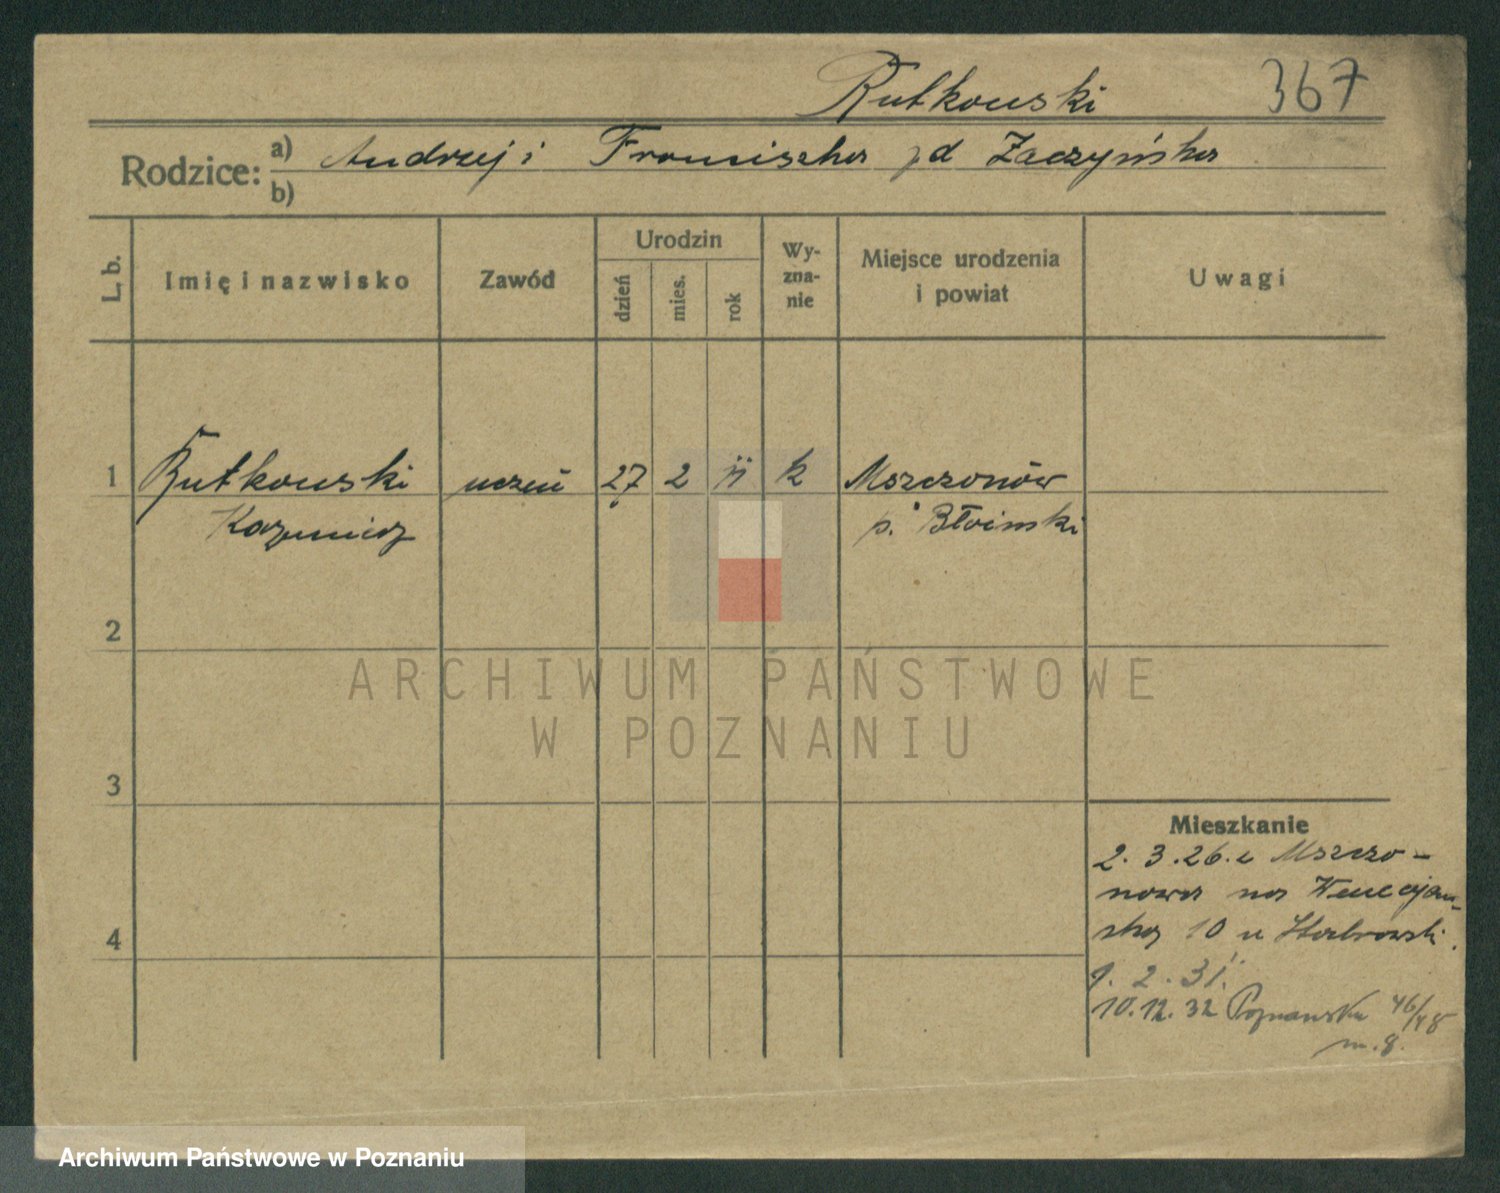 Rutkowski 367
Rodzice: a) Andrzej i Franciszka z d Zaczyńska
b)
L. b. Imię i nazwisko Zawód Urodzin dzień mies. rok Wyzna-nie Miejsce urodzenia i powiat Uwagi
1 Rutkowski uczeń 27 2 11 k Mszczonów
Kazimierz p. Błoński
2
ARCHIWUM PAŃSTWOWE
W POZNANIU
3
Mieszkanie
2. 3. 26. z Mszczo-
nowa na Wenecjań-
4 ską 10 u
1. 2. 31.
10. 12. 32 Poznańska 46/48
m. 8.
Archiwum Państwowe w Poznaniu